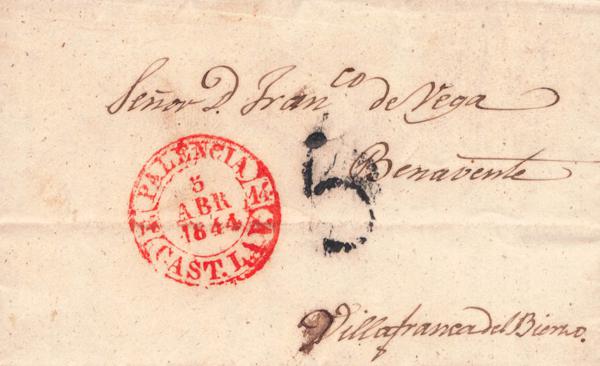 Señor D. Franco de Vega
Benavente
PALENCIA
5
ABR
1844
CAST. LA V.
5
Villafranca del Bierzo.